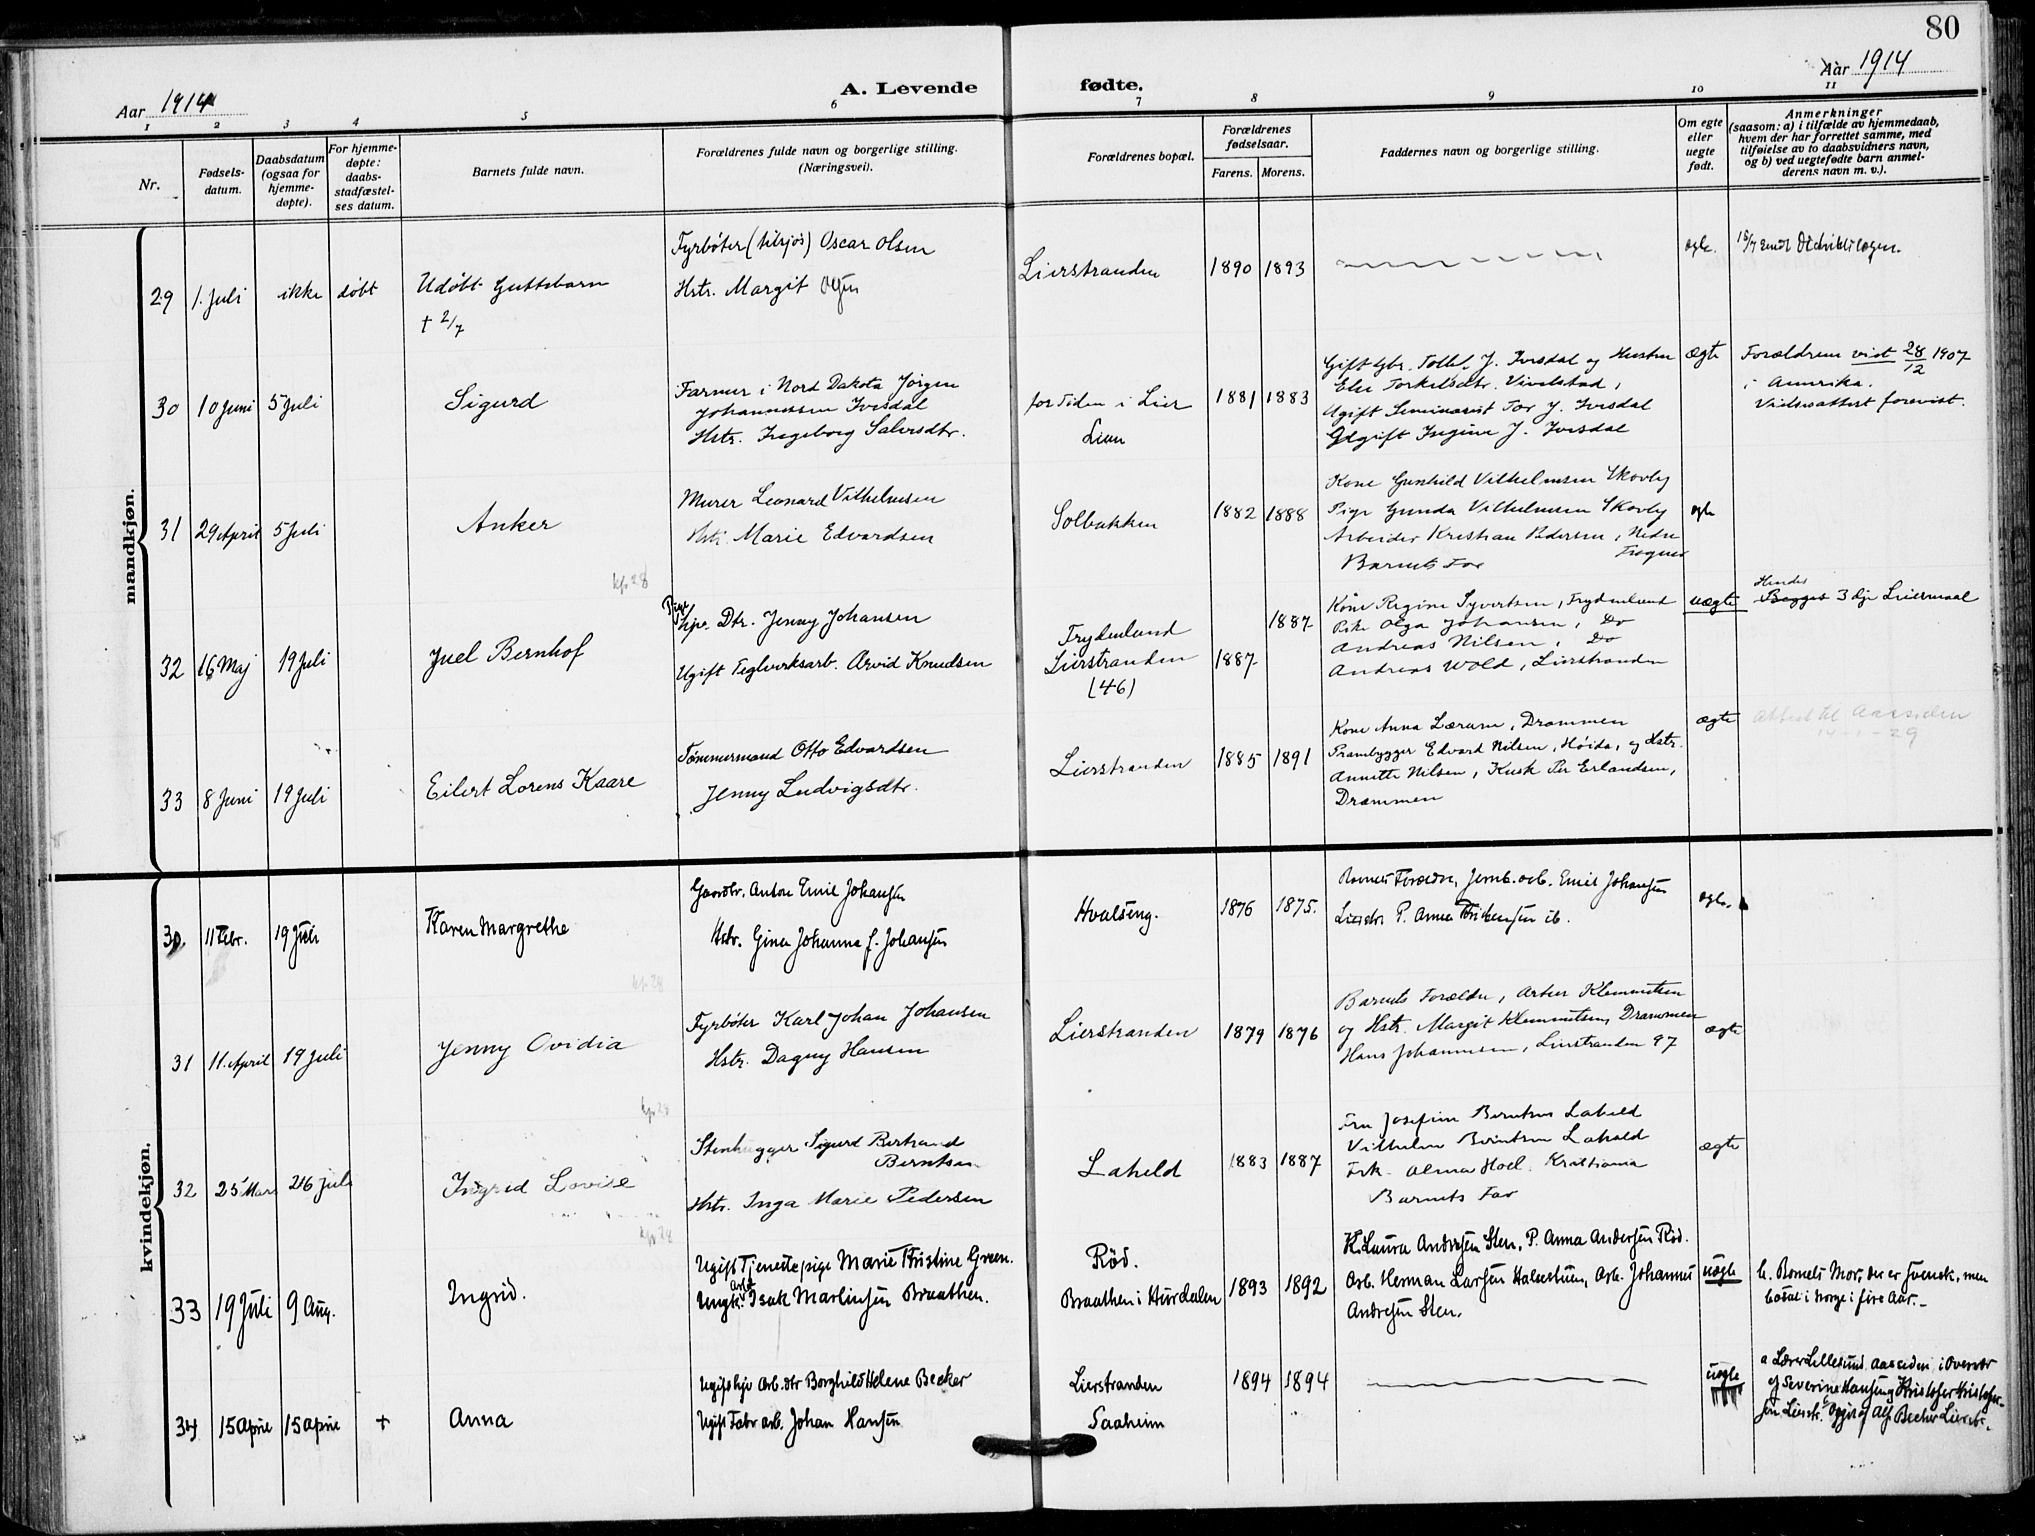 80
Aar 1914
A. Levende fødte.
Aar 1914
1 2 3 4 5 6 7 8 9 10 11
Nr.
Fødsels-
datum.
Daabsdatum
(ogsaa for
hjemme-
døpte).
For hjemme-
døpte:
daabs-
stadfæstel-
ses datum.
Barnets fulde navn.
Forældrenes fulde navn og borgerlige stilling.
(Næringsvei).
Forældrenes bopæl.
Forældrenes
fødselsaar.
Farens. Morens.
Faddernes navn og borgerlige stilling.
Om egte
eller
uegte
født.
Anmerkninger
(saasom: a) i tilfælde av hjemmedaab,
hvem der har forrettet samme, med
tilføielse av to daabsvidners navn,
og b) ved uegtefødte barn anmel-
derens navn m. v.).
mandkjøn.
29 1. Juli ikke døbt
Udøbt Guttebarn
† 2/7
Fyrbøter (tilsjøs) Oscar Olsen
Hstr. Margit
Lierstranden
1890 1893
30 10 Juni 5 Juli
Sigurd
Farmer i Nord Dakota Jørgen
Johannessen Ivesdal
Hstr. Ingeborg Salvesdtr.
for Tiden i Lier
Lien
1881 1883
Giftgbr. Tollef J. Ivesdal og Hustru
Else Torkelsdtr. Vivelstad,
Ugift Seminarist Tor J. Ivesdal
Ugift J. Ivesdal
ægte
Forældrene viet 28/12 1907
i Amerika.
Vielsesattest forevist.
31 29 April 5 Juli
Anker
Murer Leonard Vilhelmsen
Hst. Marie Edvardsen
Solbakken
1882 1888
Kone Gunhild Vilhelmsen Skovly
Pige Gunda Vilhelmsen Skovly
Arbeider Kristian Pedersen, Nedre
Frogner
Barnets Far
kp 28
32 16 Maj 19 Juli
Juel Bernhof
Pige
Dtr. Jenny Johansen
Ugift Teglverksarb. Arvid Knudsen
Frydenlund
Lierstranden
(46)
1887 1887
Kone Regine Syvertsen, Frydenlund
Pike Olga Johansen, Do
Andreas Nilsen, Do
Andreas Wold, Lierstranden
uægte
Hendes
Begges 3dje Leiermaal
33 8 Juni 19 Juli
Eilert Lorens Kaare
Tømmermand Otto Edvardsen
Jenny Ludvigsdtr.
Lierstranden
1885 1891
Kone Anna Lærum, Drammen
Prambygger Edvard Nilsen, Høida, og Hstr.
Annette Nilsen, Kusk Per Erlandsen,
Drammen
ægte
Attest til Aassiden
14-1-29
kvindekjøn.
30. 11 Febr. 19 Juli
Karen Margrethe
Gaardbr. Anton Emil Johansen
Hstr. Gina Johanna f. Johansen
Hvalseng.
1876 1875.
Barnets Forældre, Jernb. arb. Emil Johansen
Lierstr. P. Anna ib.
kp 28
31 11. April 19 Juli
Jenny Ovidia
Fyrbøter Karl Johan Johansen
Hstr. Dagny Hansen
Lierstranden
1879 1876
Barnets Forældre, Artur Klemmetsen
og Hstr. Margit Klemmetsen, Drammen
Hans Johannesen, Lierstranden 97
ægte
kp 28
32 25 Mars 26 Juli
Ingrid Lovise
Stenhugger Sigurd Bertrand
Berntsen
Hstr. Inga Marie Pedersen
Laheld
1883 1887
Fru Josefine Berntsen Laheld
Vilhelm Berntsen Laheld
Frk. Alma Hoel. Kristiania
Barnets Far
ægte
kp 28
33 19 Juli 9 Aug.
Ingrid.
Ugift Tjenestepige Marie Kristine Green.
Ungk. Arb. Isak Martinsen Braathen.
Rød.
Braathen i Hurdalen
1893 1892
K. Laura Andresen Sten, P. Anna Andersen Rød.
Arb. Herman Larsen Arb. Johannes
Andresen Sten.
uægte
b. Barnets Mor, der er svensk, men
bosat i Norge i fire Aar.
34 15 April 15 April +
Anna
Ugift hjv. Arb. dtr Borghild Helene Becker
Ugift Fabr arb. Johan Hansen
Lierstranden
Saaheim
1894 1894
uægte
a Lærer Lillesund Aassiden i Overvær
af Severine Hansen og Kristofer Kristofer-
sen Lierstr. af Alf Becker Lierstr.